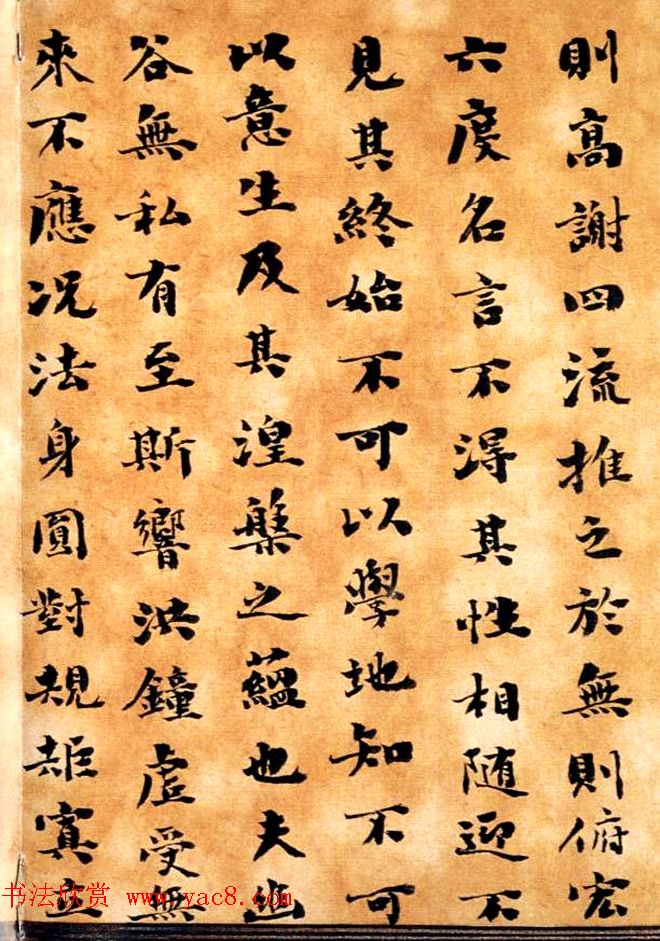 則高謝四流推之於無則俯宏
六度名言不得其性相随迎不
見其終始不可以學地知不可
以意生及其涅槃之蘊也夫幽
谷無私有至斯響洪鐘虛受無
來不應况法身圓對規矩冥立
书法欣赏 www.yac8.com